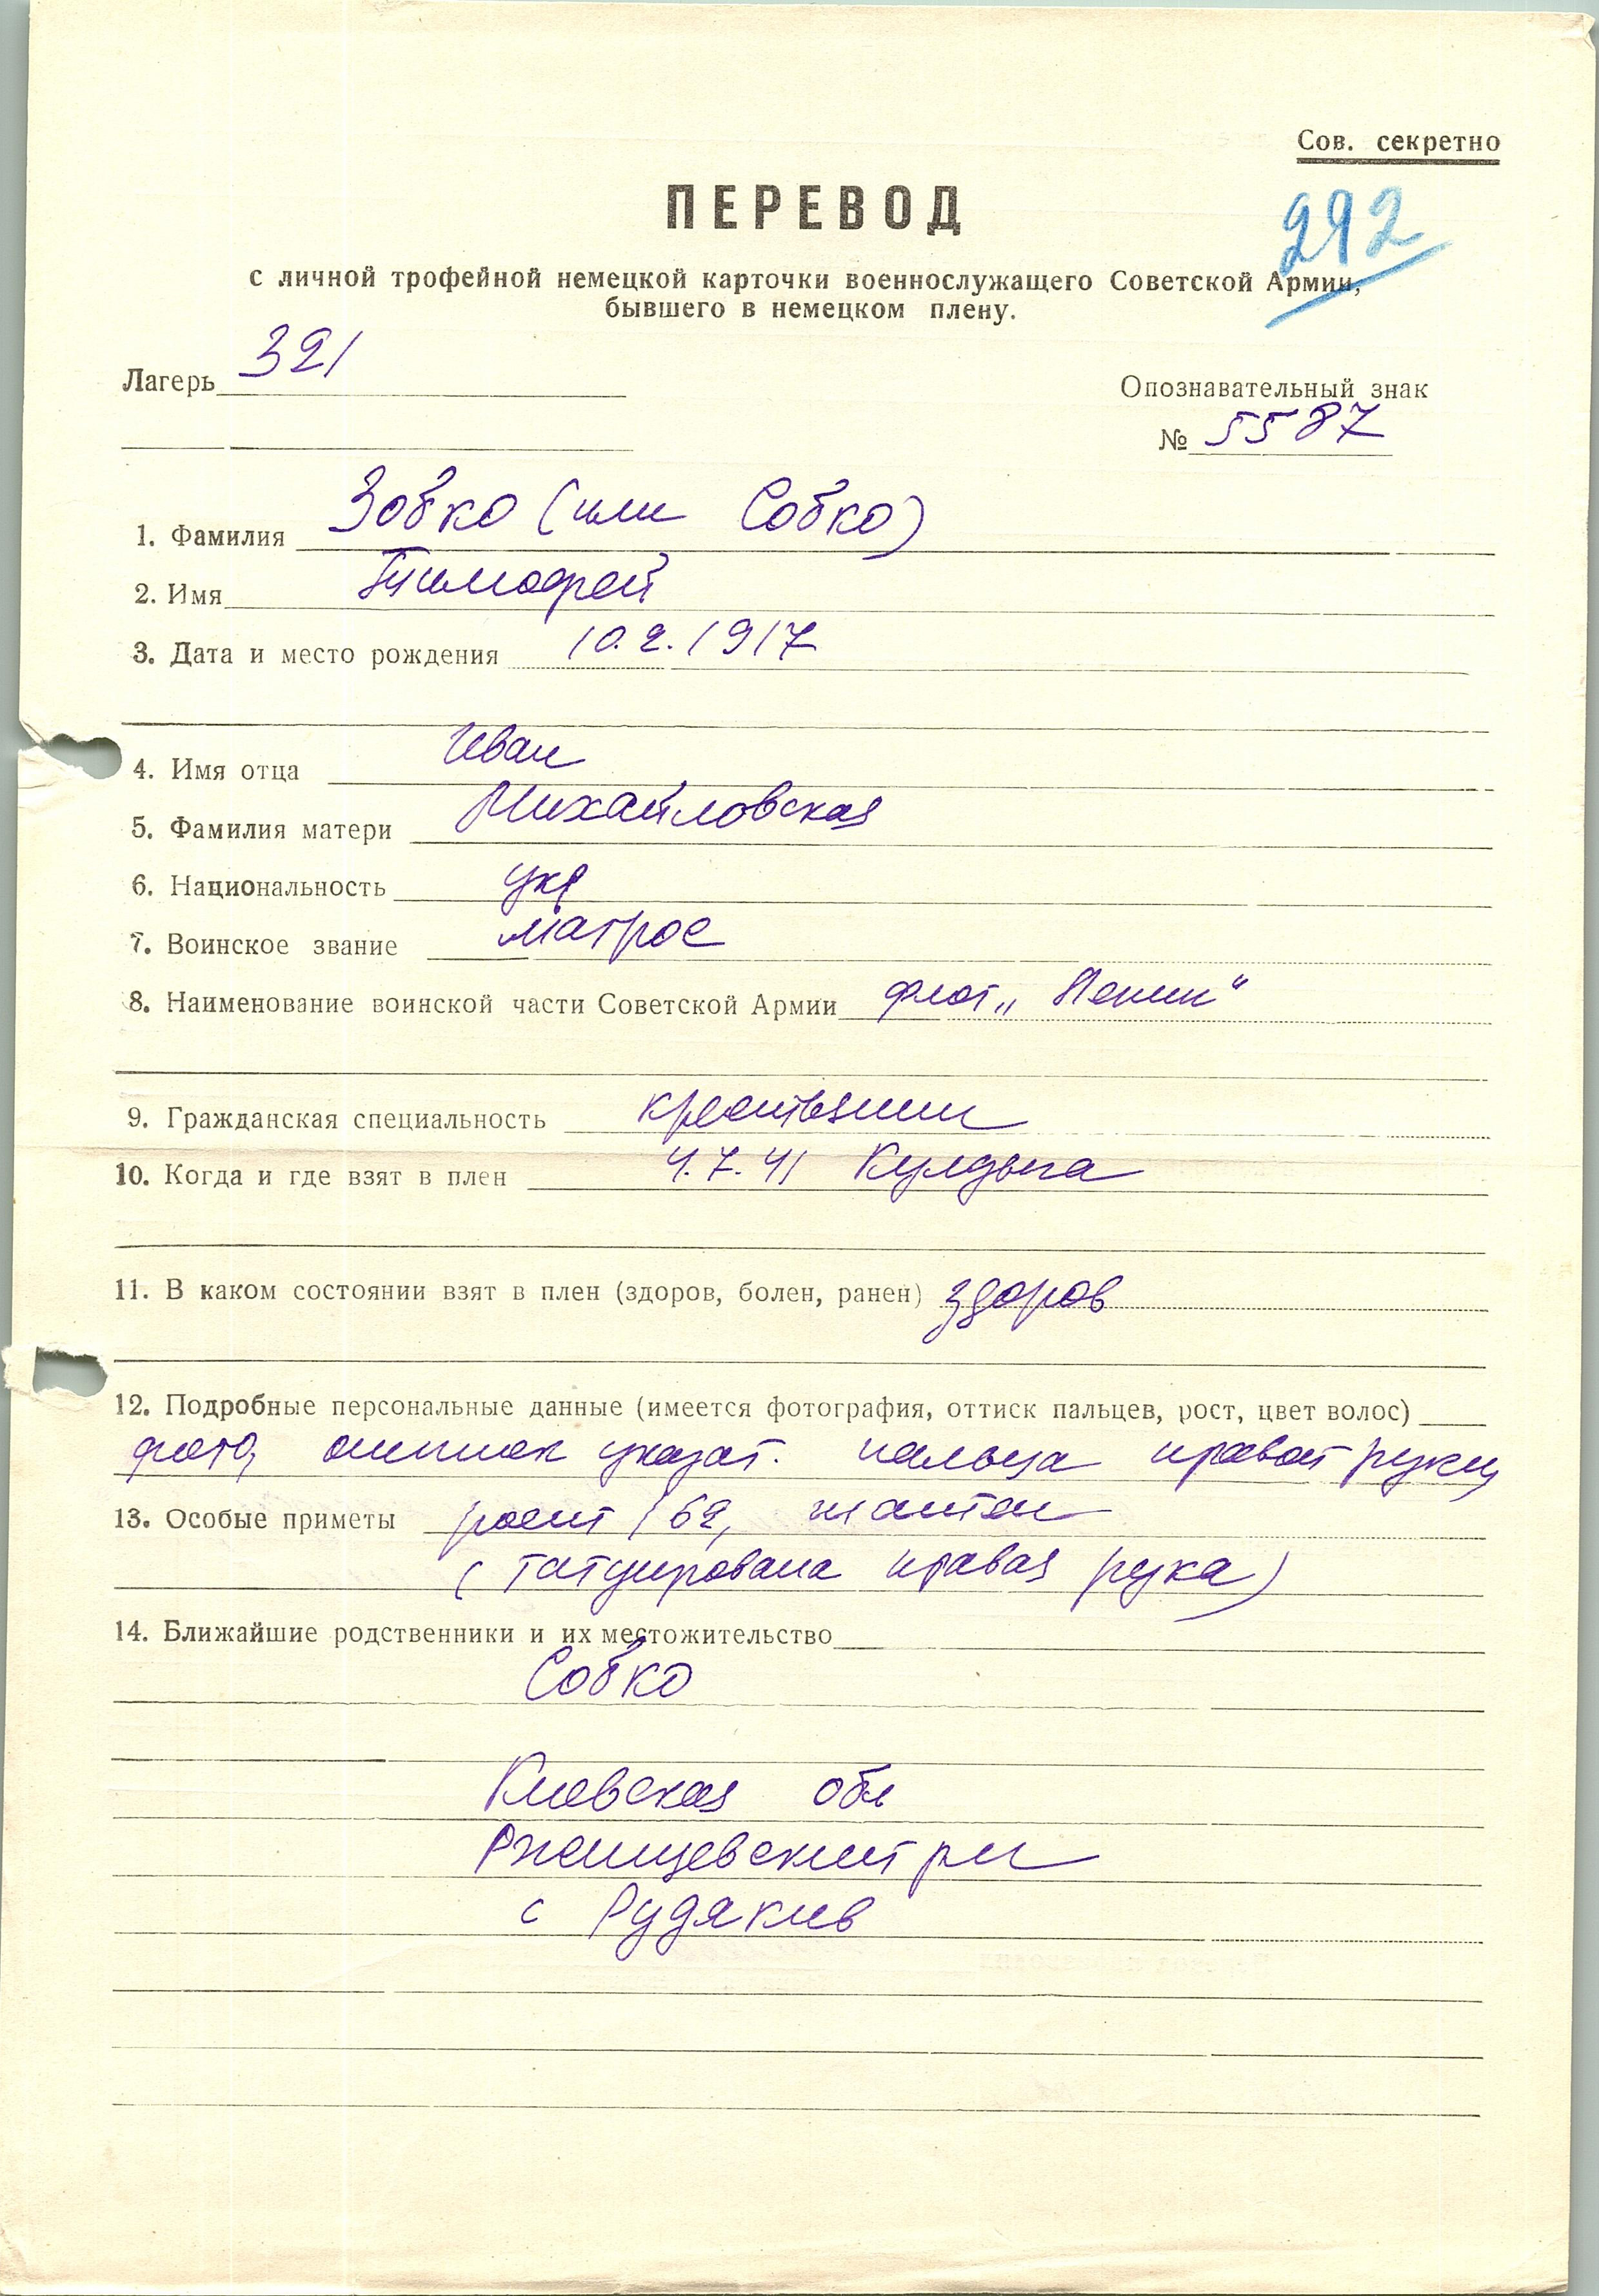 Сов. секретно
ПЕРЕВОД
292
с личной трофейной немецкой карточки военнослужащего Советской Армии,
бывшего в немецком плену.
Лагерь 321
Опознавательный знак
№ 5587
1. Фамилия Зобко (или Собко)
2. Имя Тимофей
3. Дата и место рождения 10.2.1917
4. Имя отца Иван
5. Фамилия матери Михайловская
6. Национальность укр
7. Воинское звание матрос
8. Наименование воинской части Советской Армии флот „Ленин“
9. Гражданская специальность крестьянин
10. Когда и где взят в плен 4.7.41 Кулдыга
11. В каком состоянии взят в плен (здоров, болен, ранен) здоров
12. Подробные персональные данные (имеется фотография, оттиск пальцев, рост, цвет волос)
фото, оттиск указат. пальца правой руки,
13. Особые приметы рост 162, шатен
(татуирована правая рука)
14. Ближайшие родственники и их местожительство
Собко
Киевская обл
Ржищевский рн
с Рудякив